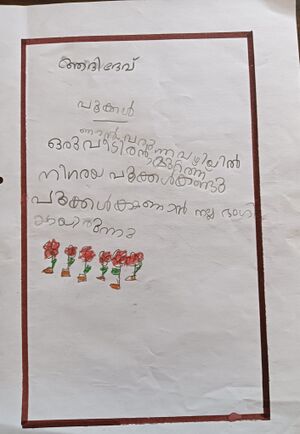 ആദിദേവ്
പൂക്കൾ
ഞാൻ വരുന്ന വഴിയിൽ
ഒരു വീടിൻ്റെ മുറ്റത്ത്
നിറയെ പൂക്കൾ കണ്ടു
പൂക്കൾ കാണാൻ നല്ല ഭംഗി
യായിരുന്നു